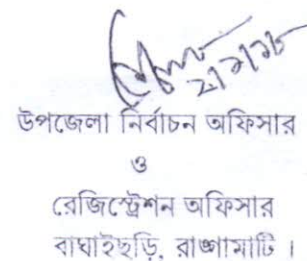 উপজেলা নির্বাচন অফিসার
ও
রেজিস্ট্রেশন অফিসার
বাঘাইছড়ি, রাঙ্গামাটি ।